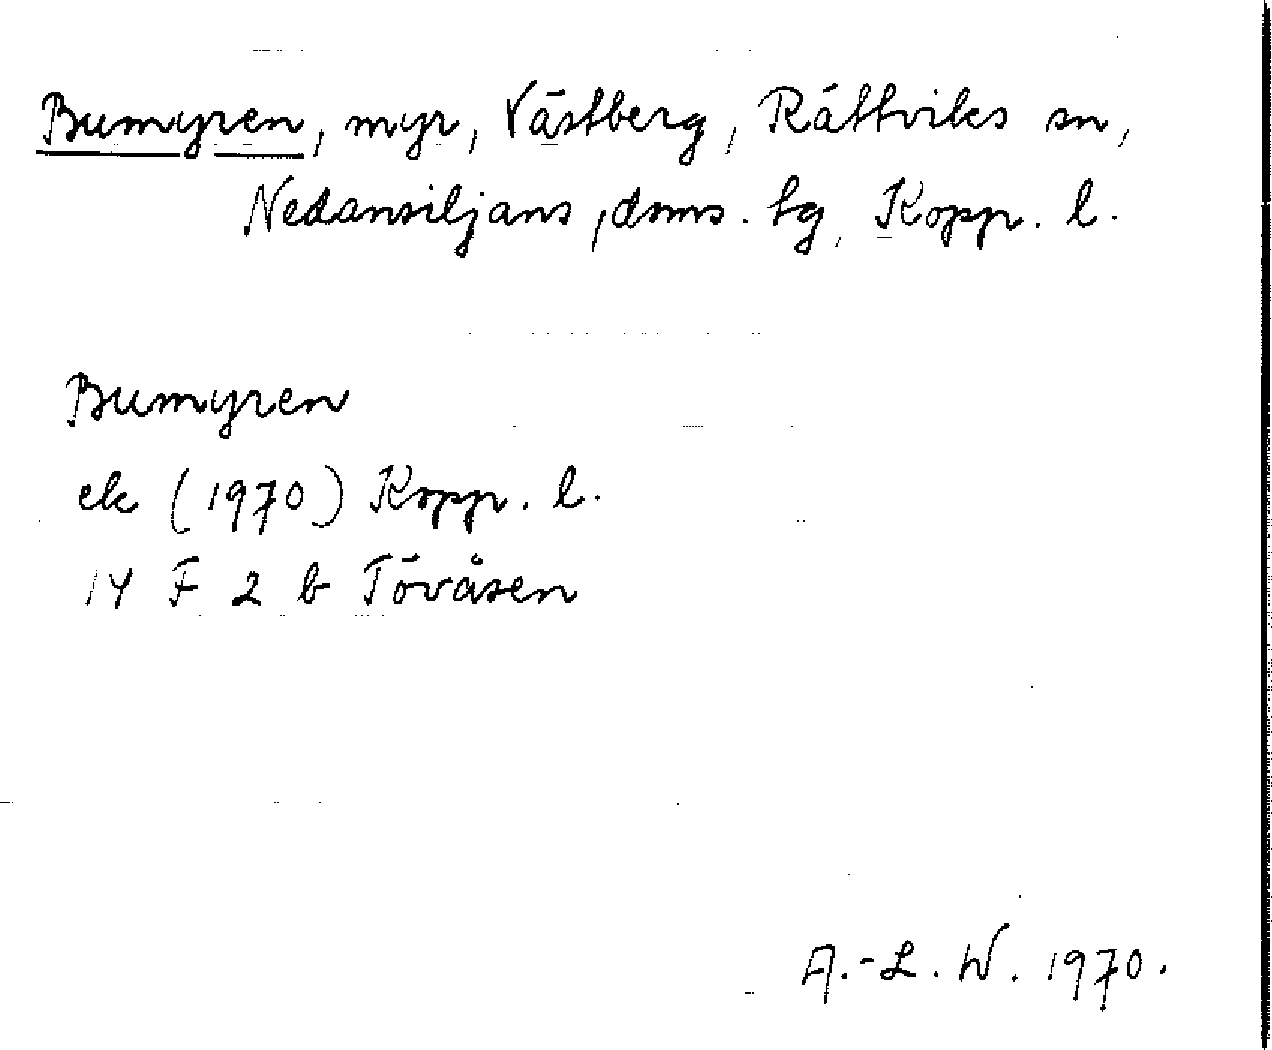 Bumyren, myr, Västberg, Rättviks sn,
Nedansiljans, doms. tg, Kopp. l.
Bumyren
ek (1970) Kopp. l.
14 F 2 b Tövåsen
A.-L. W. 1970.